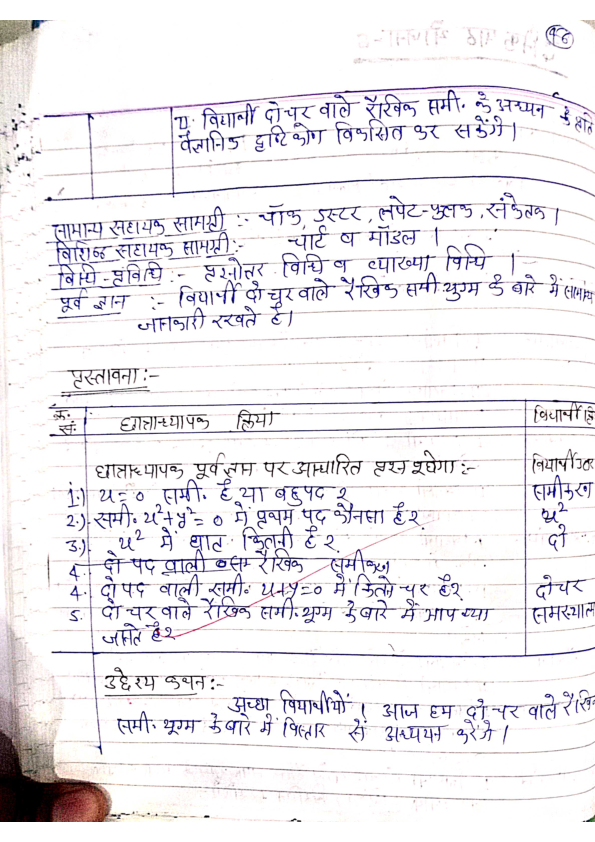 46
II. विद्यार्थी दो चर वाले रैखिक समी. के अध्ययन के प्रति
वैज्ञानिक दृष्टिकोण विकसित कर सकेंगे।
सामान्य सहायक सामग्री :- चॉक, डस्टर, लपेट-फलक, संकेतक।
विशिष्ट सहायक सामग्री:- चार्ट व मॉडल।
विधि-प्रविधि :- प्रश्नोत्तर विधि व व्याख्या विधि।
पूर्व ज्ञान :- विद्यार्थी दो चर वाले रैखिक समी. युग्म के बारे में सामान्य
जानकारी रखते हैं।
प्रस्तावना:-
क्र. सं. छात्राध्यापक क्रिया विद्यार्थी
छात्राध्यापक पूर्वज्ञान पर आधारित प्रश्न पूछेगा:-
1.) x=0 समी. है या बहुपद ? समीकरण
2.) समी. x²+y²=0 में प्रथम पद कौनसा है? x²
3.) x² में घात कितनी है? दो
4. दो पद वाली रैखिक समीकरण
4. दो पद वाली समी. x+y=0 में कितने चर है? दो चर
5. दो चर वाले रैखिक समी. युग्म के बारे में आप क्या
जानते है?
उद्देश्य कथन:-
अच्छा विद्यार्थीयों। आज हम दो चर वाले
समी. युग्म के बारे में विस्तार से अध्ययन करेंगे।